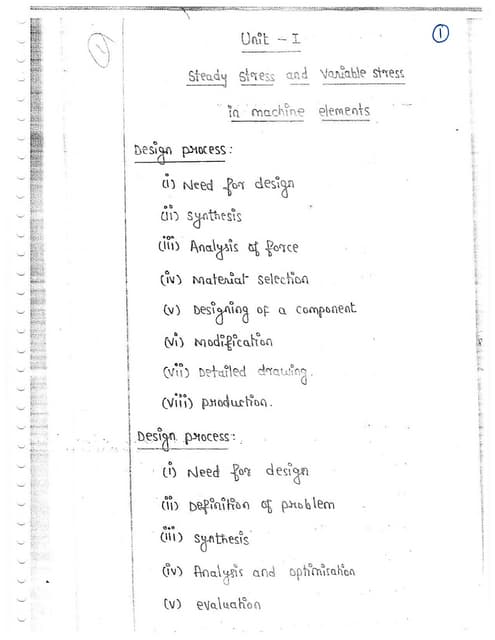 Unit - I
①
Steady stress and variable stress
in machine elements
Design process:
(i) Need for design
(ii) Synthesis
(iii) Analysis of force
(iv) Material selection
(v) Designing of a component
(vi) Modification
(vii) Detailed drawing.
(viii) production.
Design process:
(i) Need for design
(ii) Definition of problem
(iii) Synthesis
(iv) Analysis and optimisation
(v) evaluation